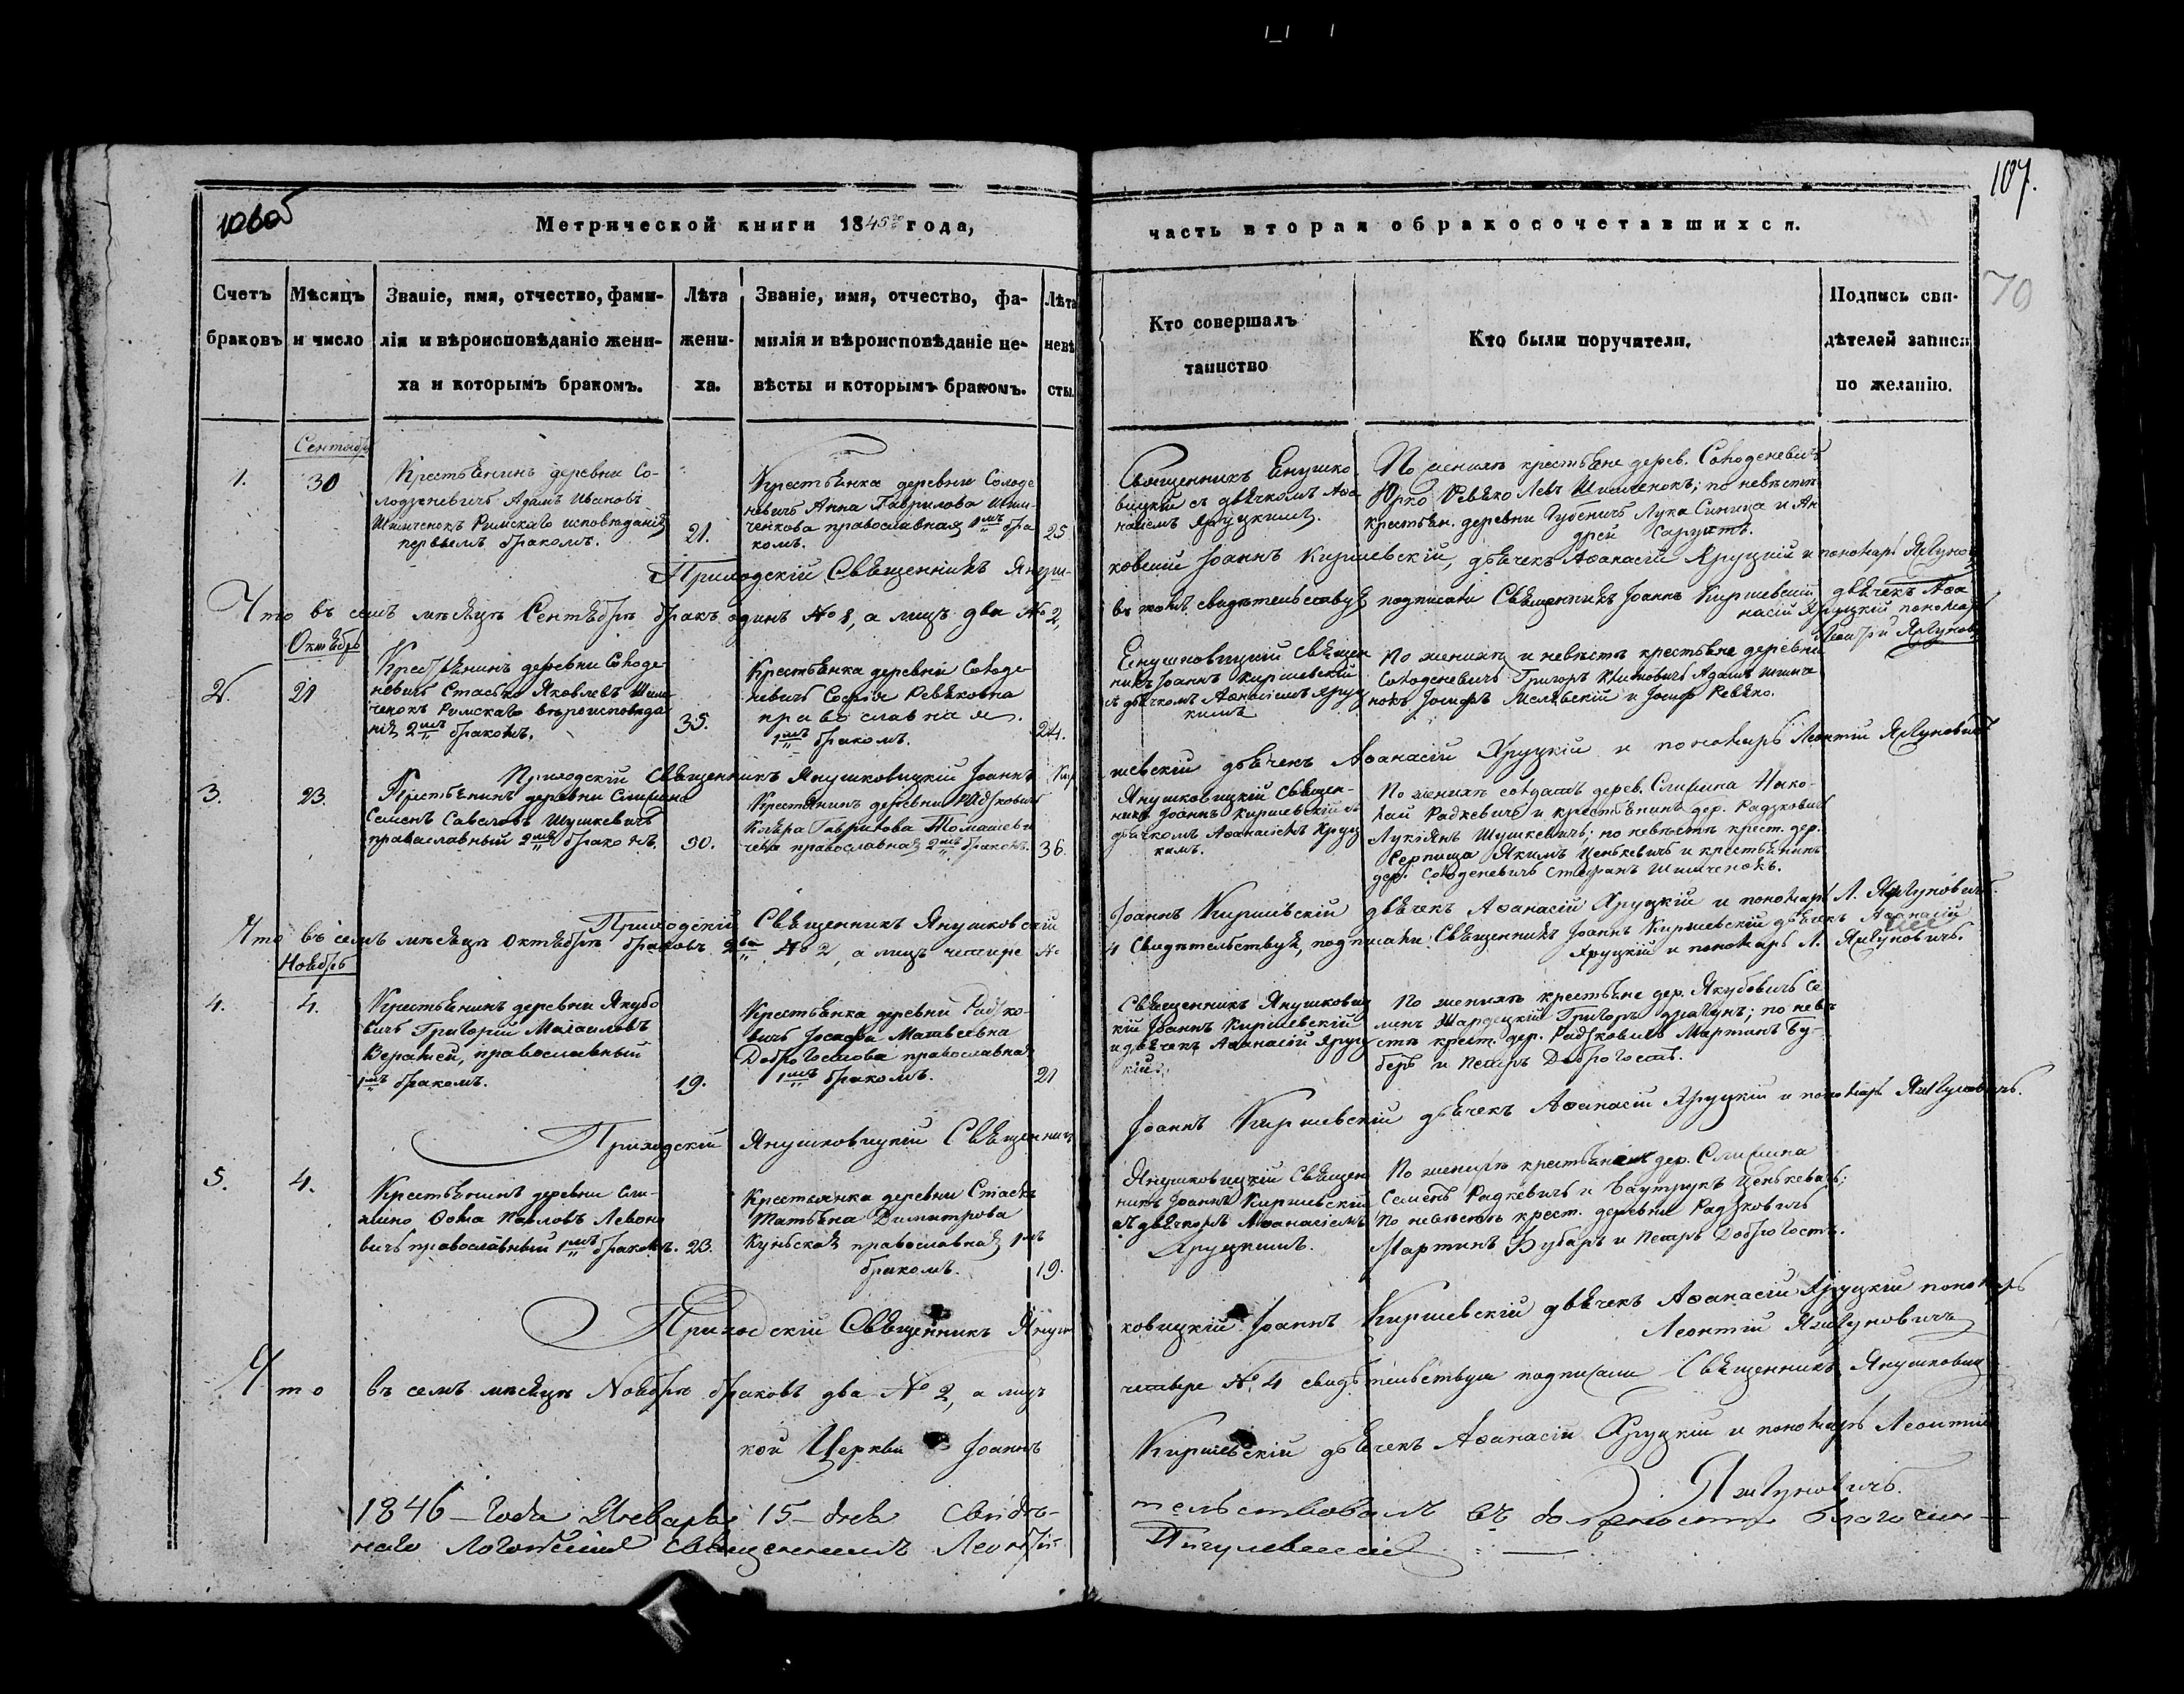 106об
107.
70
Метрической книги 1845го года,
часть вторая о бракосочетавшихся.
Счетъ браковъ
Мѣсяцъ и число
Званіе, имя, отчество, фами-
лія и вѣроисповѣданіе жени-
ха и которымъ бракомъ.
Лѣта
жени-
ха.
Званіе, имя, отчество, фа-
милія и вѣроисповѣданіе не-
вѣсты и которымъ бракомъ.
Лѣта
невѣ
сты.
Кто совершалъ
таинство
Кто были поручители.
Подпись сви-
дѣтелей записи
по желанію.
Сентябрь
1.
30
Крестьянинъ деревни Со-
лодженевичъ Адамъ Ивановъ
Шимченокъ Римскаго исповѣданія
первымъ бракомъ.
21.
Крестьянка деревни Солоде
невичъ Анна Гаврилова Шим-
ченкова православная 1мъ бра
комъ.
25
Священникъ Енушко
вицкій съ дьячкомъ Афа
насіемъ Яруцкимъ.
По женихѣ крестьяне дерев. Солоденевичъ
Юрко Ревяко Левъ Шимченокъ; по невѣстѣ
крестьян. деревни Губеничъ Лука Синица и Ан
дрей Харужъ.
Приходскій Священникъ Януш-
ковскій Іоаннъ Киршевскій, дьячекъ Афанасій Яруцкій и пономарь
Что въ семъ мѣсяцѣ Сентябрѣ бракъ одинъ № 1, а лицъ два № 2,
въ томъ свидѣтельствуя подписали Священникъ Іоаннъ Киршевскій дьячекъ Афа
насій Яруцкій пономарь
Октябрь
2.
21
Крестьянинъ деревни Солоде
невичъ Стасько Яковлевъ Шим
ченокъ Римскаго вѣроисповѣда
нія 2мъ бракомъ.
35.
Крестьянка деревни Солоде
невичъ Софія Ревяковна
православная
1мъ бракомъ.
24.
Енушковицкій Священ
никъ Іоаннъ Киршевскій
съ дьячкомъ Афанасіемъ Яруц
кимъ
По женихѣ и невѣстѣ крестьяне деревни
Солоденевичъ Григоръ Климовичъ Адамъ Шимче
нокъ Іосифъ и Іосиф Ревяко.
Приходскій Священникъ Янушковицкій Іоаннъ Кир
шевскій дьячекъ Афанасій Яруцкій и пономарь Леонтій
3.
23.
Крестьянинъ деревни Слижина
Семенъ Савеловъ Шушкевичъ
православный 2мъ бракомъ.
30.
Гаврилова Томашеви
чева православная 2мъ бракомъ.
36.
Янушковицкій Священ-
никъ Іоаннъ Киршевскій съ
дьячкомъ Афанасіемъ Яруц
кимъ.
По женихѣ солдатъ дерев. Слижина Нико-
лай Радкевичъ и крестьянинъ дер. Радзковичъ
Лукіянъ Шушкевичъ; по невѣстѣ крест. дер.
Якимъ Ценькевичъ и крестьянинъ
дер. Солоденевичъ Стефанъ Шимченокъ.
Приходскій Священникъ Янушковскій
Іоаннъ Киршевскій дьячекъ Афанасій Яруцкій и пономарь Л.
Что въ семъ мѣсяцѣ Октябрѣ браковъ два № 2, а лицъ четыре №
4 Свидѣтельствуя, подписали: Священникъ Іоаннъ Киршевскій дьячекъ Афанасій
Яруцкій и пономарь Л.
Ноябрь
4.
4.
Крестьянинъ деревни Якубо
вичъ Григорій Михаиловъ
православный
1мъ бракомъ.
19.
Крестьянка деревни Радзко-
вичъ Матвеевна
Доброгостова православная
1мъ бракомъ.
21
Священникъ Янушковиц
кій Іоаннъ Киршевскій
и дьячекъ Афанасій Яруц
кій.
По женихѣ крестьяне дер. Якубовичъ Се
менъ Григоръ; по невѣ
стѣ крест. дер. Радзковичъ Мартинъ Бу-
беръ и Петръ Доброгость.
Приходскій Янушковицкій Священникъ
Іоаннъ Киршевскій дьячекъ Афанасій Яруцкій и пономарь
5.
4.
Крестьянинъ деревни Сли-
жино Фома Павловъ Левко
вичъ православный 1мъ бракомъ.
23.
Крестьянка деревни
Татьяна Димитрова
православная 1мъ
бракомъ.
19.
Янушковицкій Священ
никъ Іоаннъ Киршевскій
съ дьячкомъ Афанасіемъ
Яруцкимъ.
По женихѣ крестьяне дер. Слижина
Семенъ Радкевичъ и Ценькевичъ;
по невѣстѣ крест. деревни Радзковичъ
Мартинъ Бубаръ и Петръ Доброгость.
Приходскій Священникъ Януш
ковицкій Іоаннъ Киршевскій дьячекъ Афанасій Яруцкій пономарь
Леонтій
Что въ семъ мѣсяцѣ Ноябрѣ браковъ два № 2, а лицъ
четыре № 4 свидѣтельствуя подписали Священникъ Янушковиц
кой Церкви Іоаннъ
Киршевскій дьячекъ Афанасій Яруцкій и пономарь Леонтій
1846 года Января 15 дня свидѣ-
тельствовалъ въ должности благочин-
наго Логойскій священникъ Леонтій
Пигулевскій